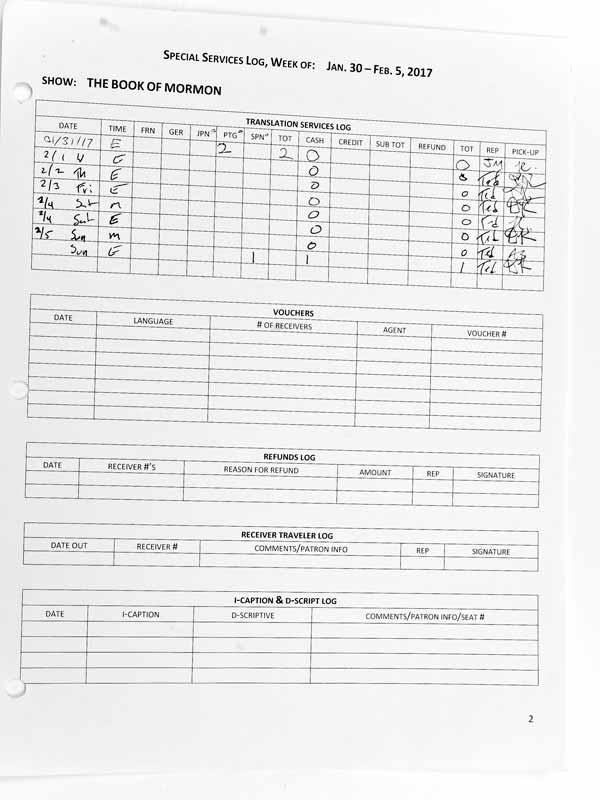 SPECIAL SERVICES LOG, WEEK OF: JAN. 30 – FEB. 5, 2017
SHOW: THE BOOK OF MORMON
TRANSLATION SERVICES LOG
DATE TIME FRN GER JPN PTG SPN TOT CASH CREDIT SUB TOT REFUND TOT REP PICK-UP
01/31/17 E 2 2 0 0 JM
2/1 E 0 Ted
2/2 Th E 0 0 Ted
2/3 Fri E 0 0 Ted
2/4 Sat m 0 0 Ted
2/4 Sat E 0 0 Ted
2/5 Sun m 0 0 Ted
Sun E 1 1 1 Ted
VOUCHERS
DATE LANGUAGE # OF RECEIVERS AGENT VOUCHER #
REFUNDS LOG
DATE RECEIVER #'S REASON FOR REFUND AMOUNT REP SIGNATURE
RECEIVER TRAVELER LOG
DATE OUT RECEIVER # COMMENTS/PATRON INFO REP SIGNATURE
I-CAPTION & D-SCRIPT LOG
DATE I-CAPTION D-SCRIPTIVE COMMENTS/PATRON INFO/SEAT #
2